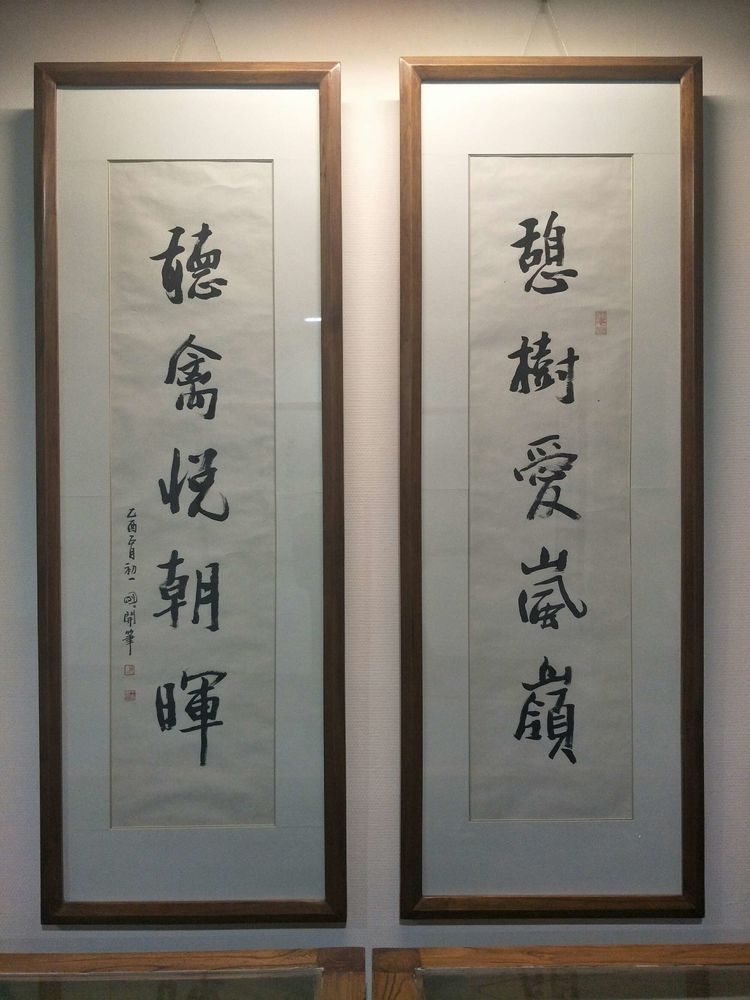 憩樹愛嵐嶺
聽禽悦朝暉
乙酉正月初一國開筆